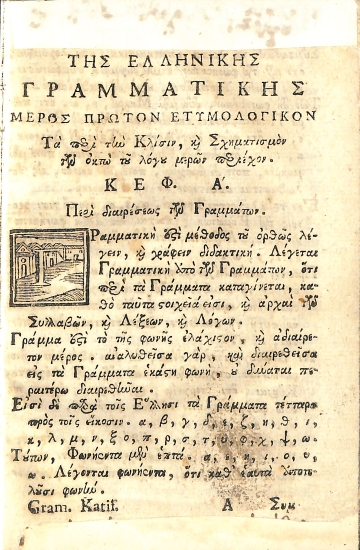 ΤΗΣ ΕΛΛΗΝΙΚΗΣ
ΓΡΑΜΜΑΤΙΚΗΣ
ΜΕΡΟΣ ΠΡΩΤΟΝ ΕΤΥΜΟΛΟΓΙΚΟΝ
Τὰ περὶ τὴν Κλίσιν, καὶ Σχηματισμὸν
τῶν ὀκτὼ τοῦ λόγου μερῶν περιέχον.
ΚΕΦ. Α΄.
Περὶ διαιρέσεως τῶν Γραμμάτων.
Γραμματικὴ ἐστὶ μέθοδος τοῦ ὀρθῶς λέ-
γειν, καὶ γράφειν διδακτική. Λέγεται
Γραμματικὴ ἀπὸ τῶν Γραμμάτων, ὅτι
περὶ τὰ Γράμματα καταγίνεται, κα-
θὸ ταῦτα στοιχεῖά εἰσι, καὶ ἀρχαὶ τῶν
Συλλαβῶν, καὶ Λέξεων, καὶ Λόγων.
Γράμμα ἐστὶ τὸ τῆς φωνῆς ἐλάχιστον, καὶ ἀδιαίρε-
τον μέρος. ἀναλυθεῖσα γὰρ, καὶ διαιρεθεῖσα
εἰς τὰ Γράμματα ἑκάστη φωνὴ, οὐ δύναται πε-
ραιτέρω διαιρεθῆναι.
Εἰσὶ δὲ παρὰ τοῖς Ἕλλησι τὰ Γράμματα τέτταρα
πρὸς τοῖς εἴκοσιν. α, β, γ, δ, ε, ζ, η, θ, ι,
κ, λ, μ, ν, ξ, ο, π, ρ, σ, τ, υ, φ, χ, ψ, ω.
Τούτων, Φωνήεντα μὲν ἑπτά. α, ε, η, ι, ο, υ,
ω. Λέγονται φωνήεντα, ὅτι καθ' ἑαυτὰ ἀποτε-
λοῦσι φωνήν.
Gram. Katif. A Συμ-